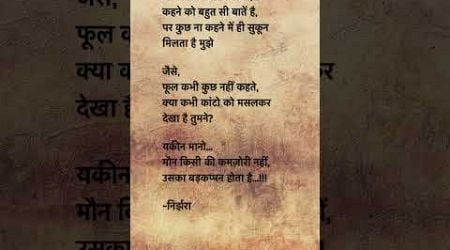 कहने को बहुत सी बातें है,
पर कुछ ना कहने में ही सुकून
मिलता है मुझे
जैसे,
फूल कभी कुछ नहीं कहते,
क्या कभी कांटो को मसलकर
देखा है तुमने?
यकीन मानो...
मौन किसी की कमज़ोरी नहीं,
उसका बड़कप्पन होता है...!!!
~निर्झरा